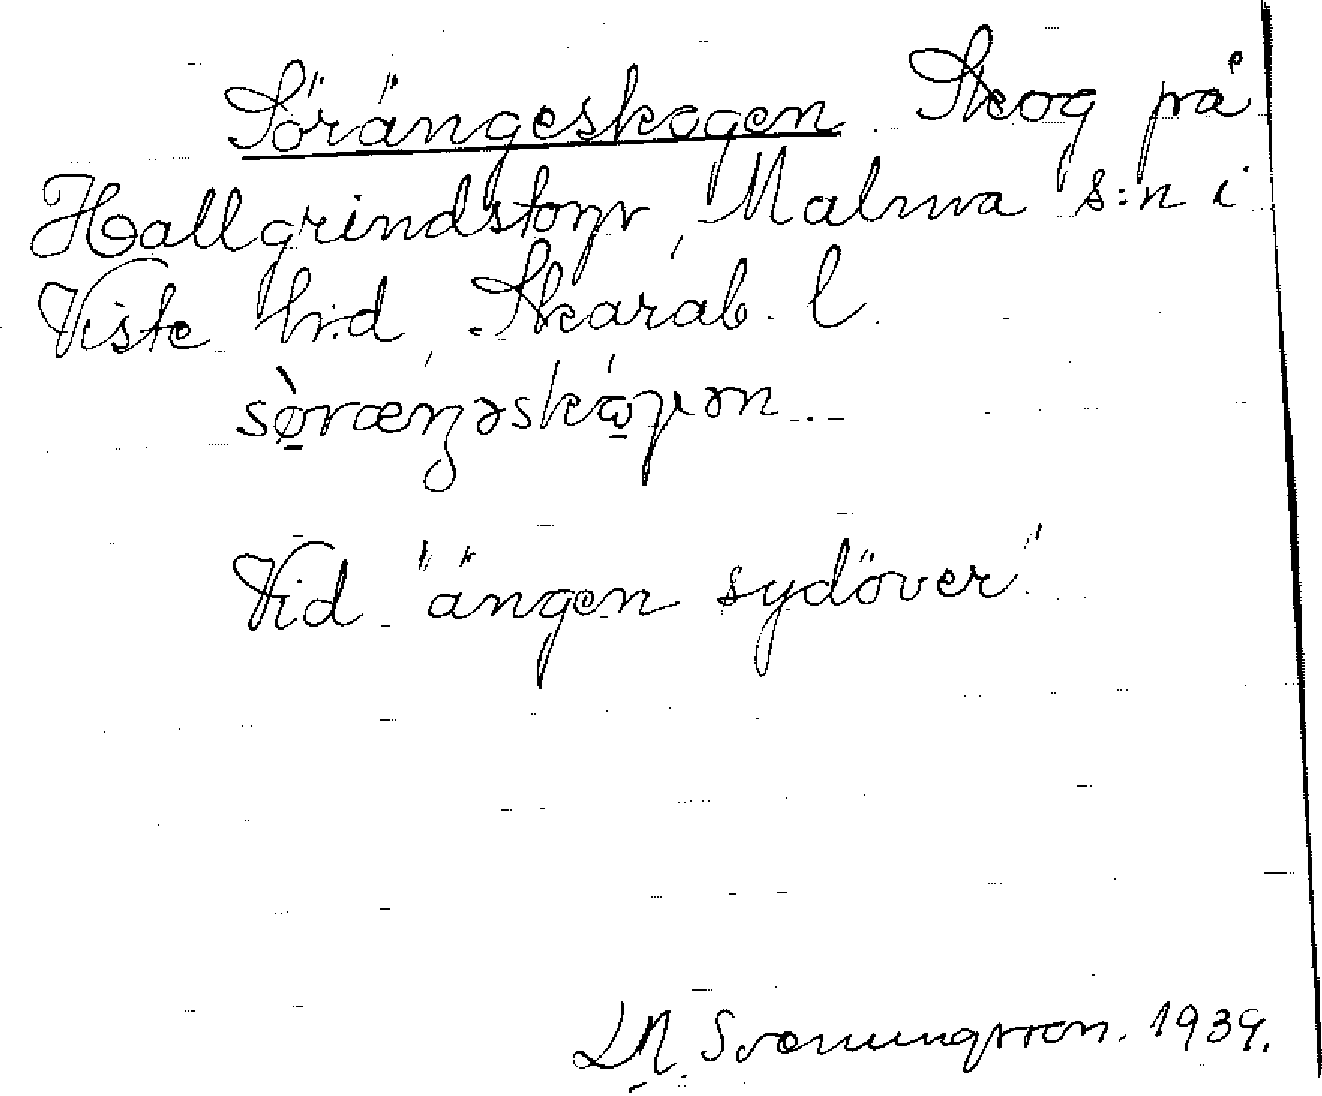 Sörängeskogen Skog på
Hallgrindstorp, Malma s:n i
Viste h:d, Skarab. l.
sø̀ræŋəskó̱gən
Vid "ängen sydöver".
Svenungsson. 1939.